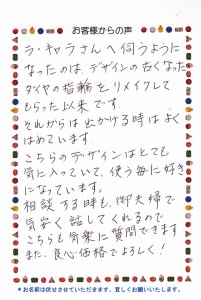 お客様からの声
ラ・キャラさんへ伺うように
なったのは、デザインの古くなった
ダイヤの指輪をリメイクして
もらった以来です。
それからは出かける時はよく
はめています。
こちらのデザインはとても
気に入っていて、使う毎に好き
になっています。
相談する時も、御夫婦で
気安く話してくれるので
こちらも気楽に質問できます
また、良心価格でよろしく!
*お名前は伏せさせていただきます、宜しくお願いいたします。